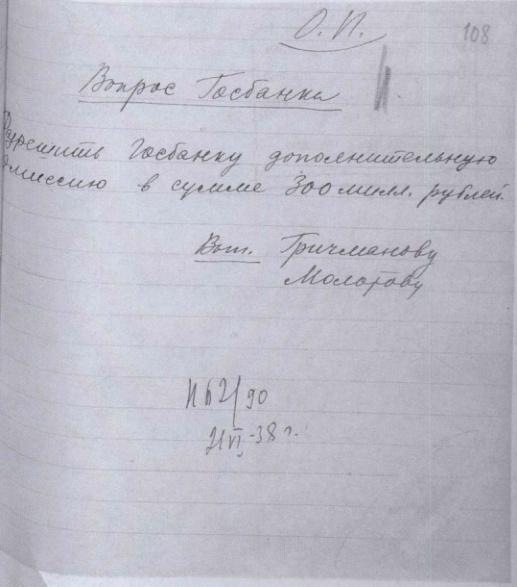 О.П.
108
Вопрос Госбанка
Разрешить Госбанку дополнительную
эмиссию в сумме 300 милл. рублей.
Вып. Гричманову
Молотову
П62/90
21/VI-38 г.